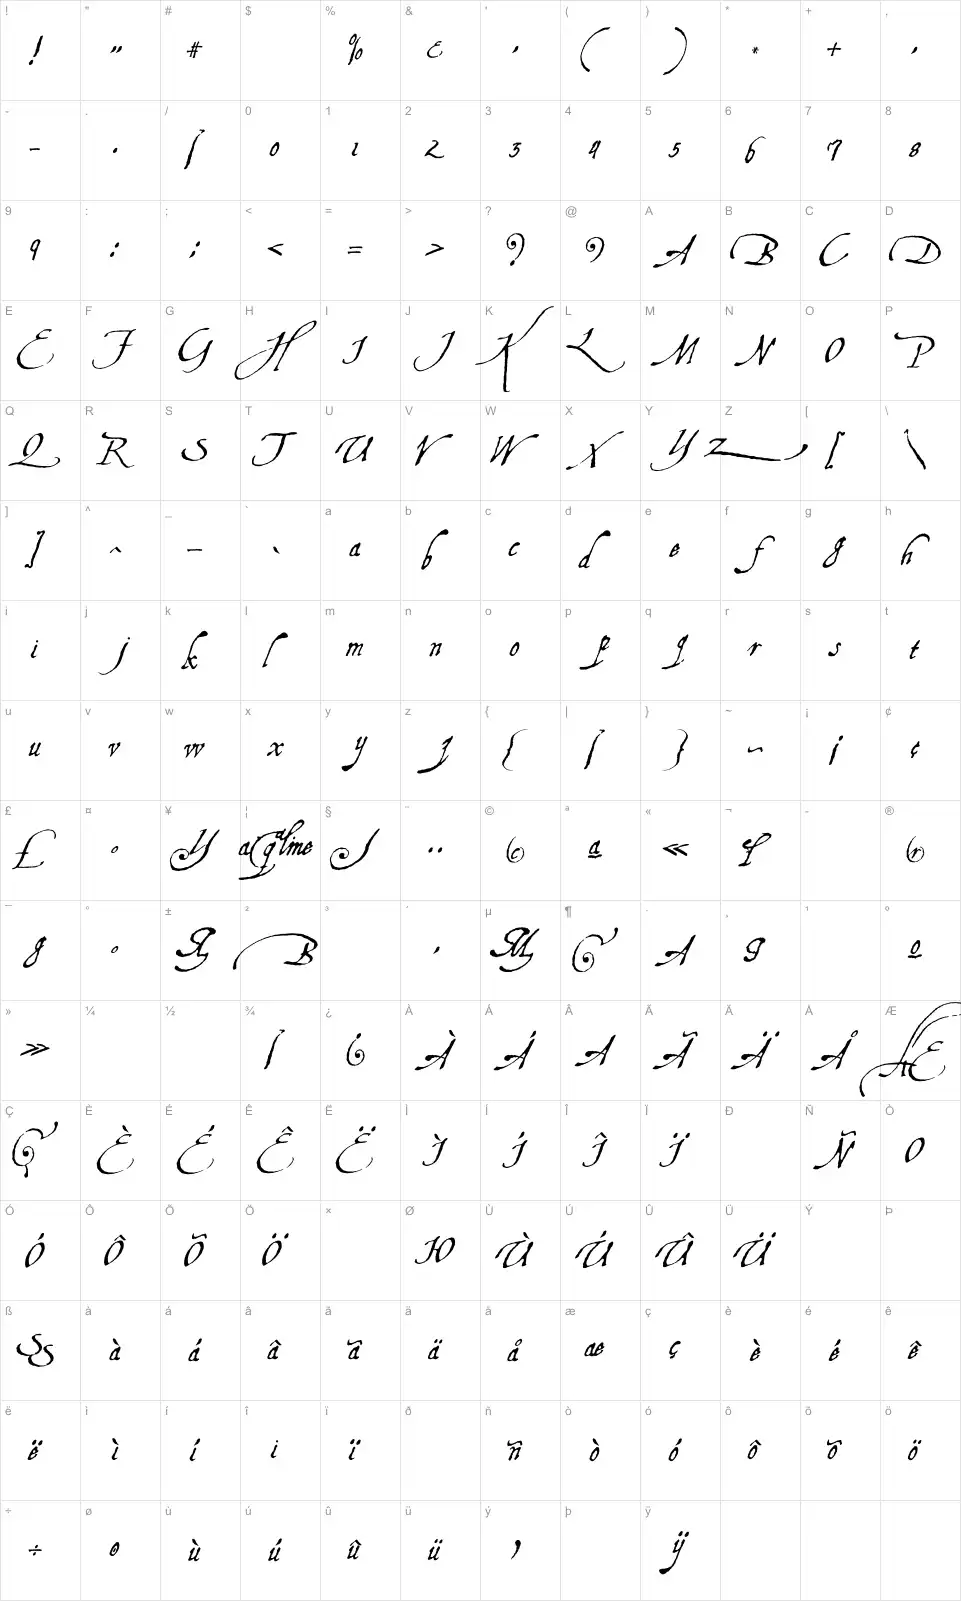 ! " # $ % & ' ( ) * + ,
! " # % & ' ( ) * + ,
- . / 0 1 2 3 4 5 6 7 8
- . / 0 1 2 3 4 5 6 7 8
9 : ; < = > ? @ A B C D
9 : ; < = > ? A B C D
E F G H I J K L M N O P
E F G H I J K L M N O P
Q R S T U V W X Y Z [ \
Q R S T U V W X Y Z [ \
] ^ _ ` a b c d e f g h
] ^ _ ` a b c d e f g h
i j k l m n o p q r s t
i j k l m n o p q r s t
u v w x y z { | } ~ ¡ ¢
u v w x y z { | } ~ ¡ ¢
£ ¤ ¥ ¦ § ¨ © ª « ¬ - ®
£ ¨ © ª « ®
¯ ° ± ² ³ ´ µ ¶ · ¸ ¹ º
° B ´ A º
» ¼ ½ ¾ ¿ À Á Â Ã Ä Å Æ
» ¿ À Á A Ã Ä Å Æ
Ç È É Ê Ë Ì Í Î Ï Ð Ñ Ò
Ç È É Ê Ë Ì Í Î Ï Ñ O
Ó Ô Õ Ö × Ø Ù Ú Û Ü Ý Þ
Ó Ô Õ Ö Ù Ú Û Ü
ß à á â ã ä å æ ç è é ê
SS à á â ã ä å æ ç è é ê
ë ì í î ï ð ñ ò ó ô õ ö
ë ì í i ï ñ ò ó ô õ ö
÷ ø ù ú û ü ý þ ÿ
÷ ø ù ú û ü , ÿ